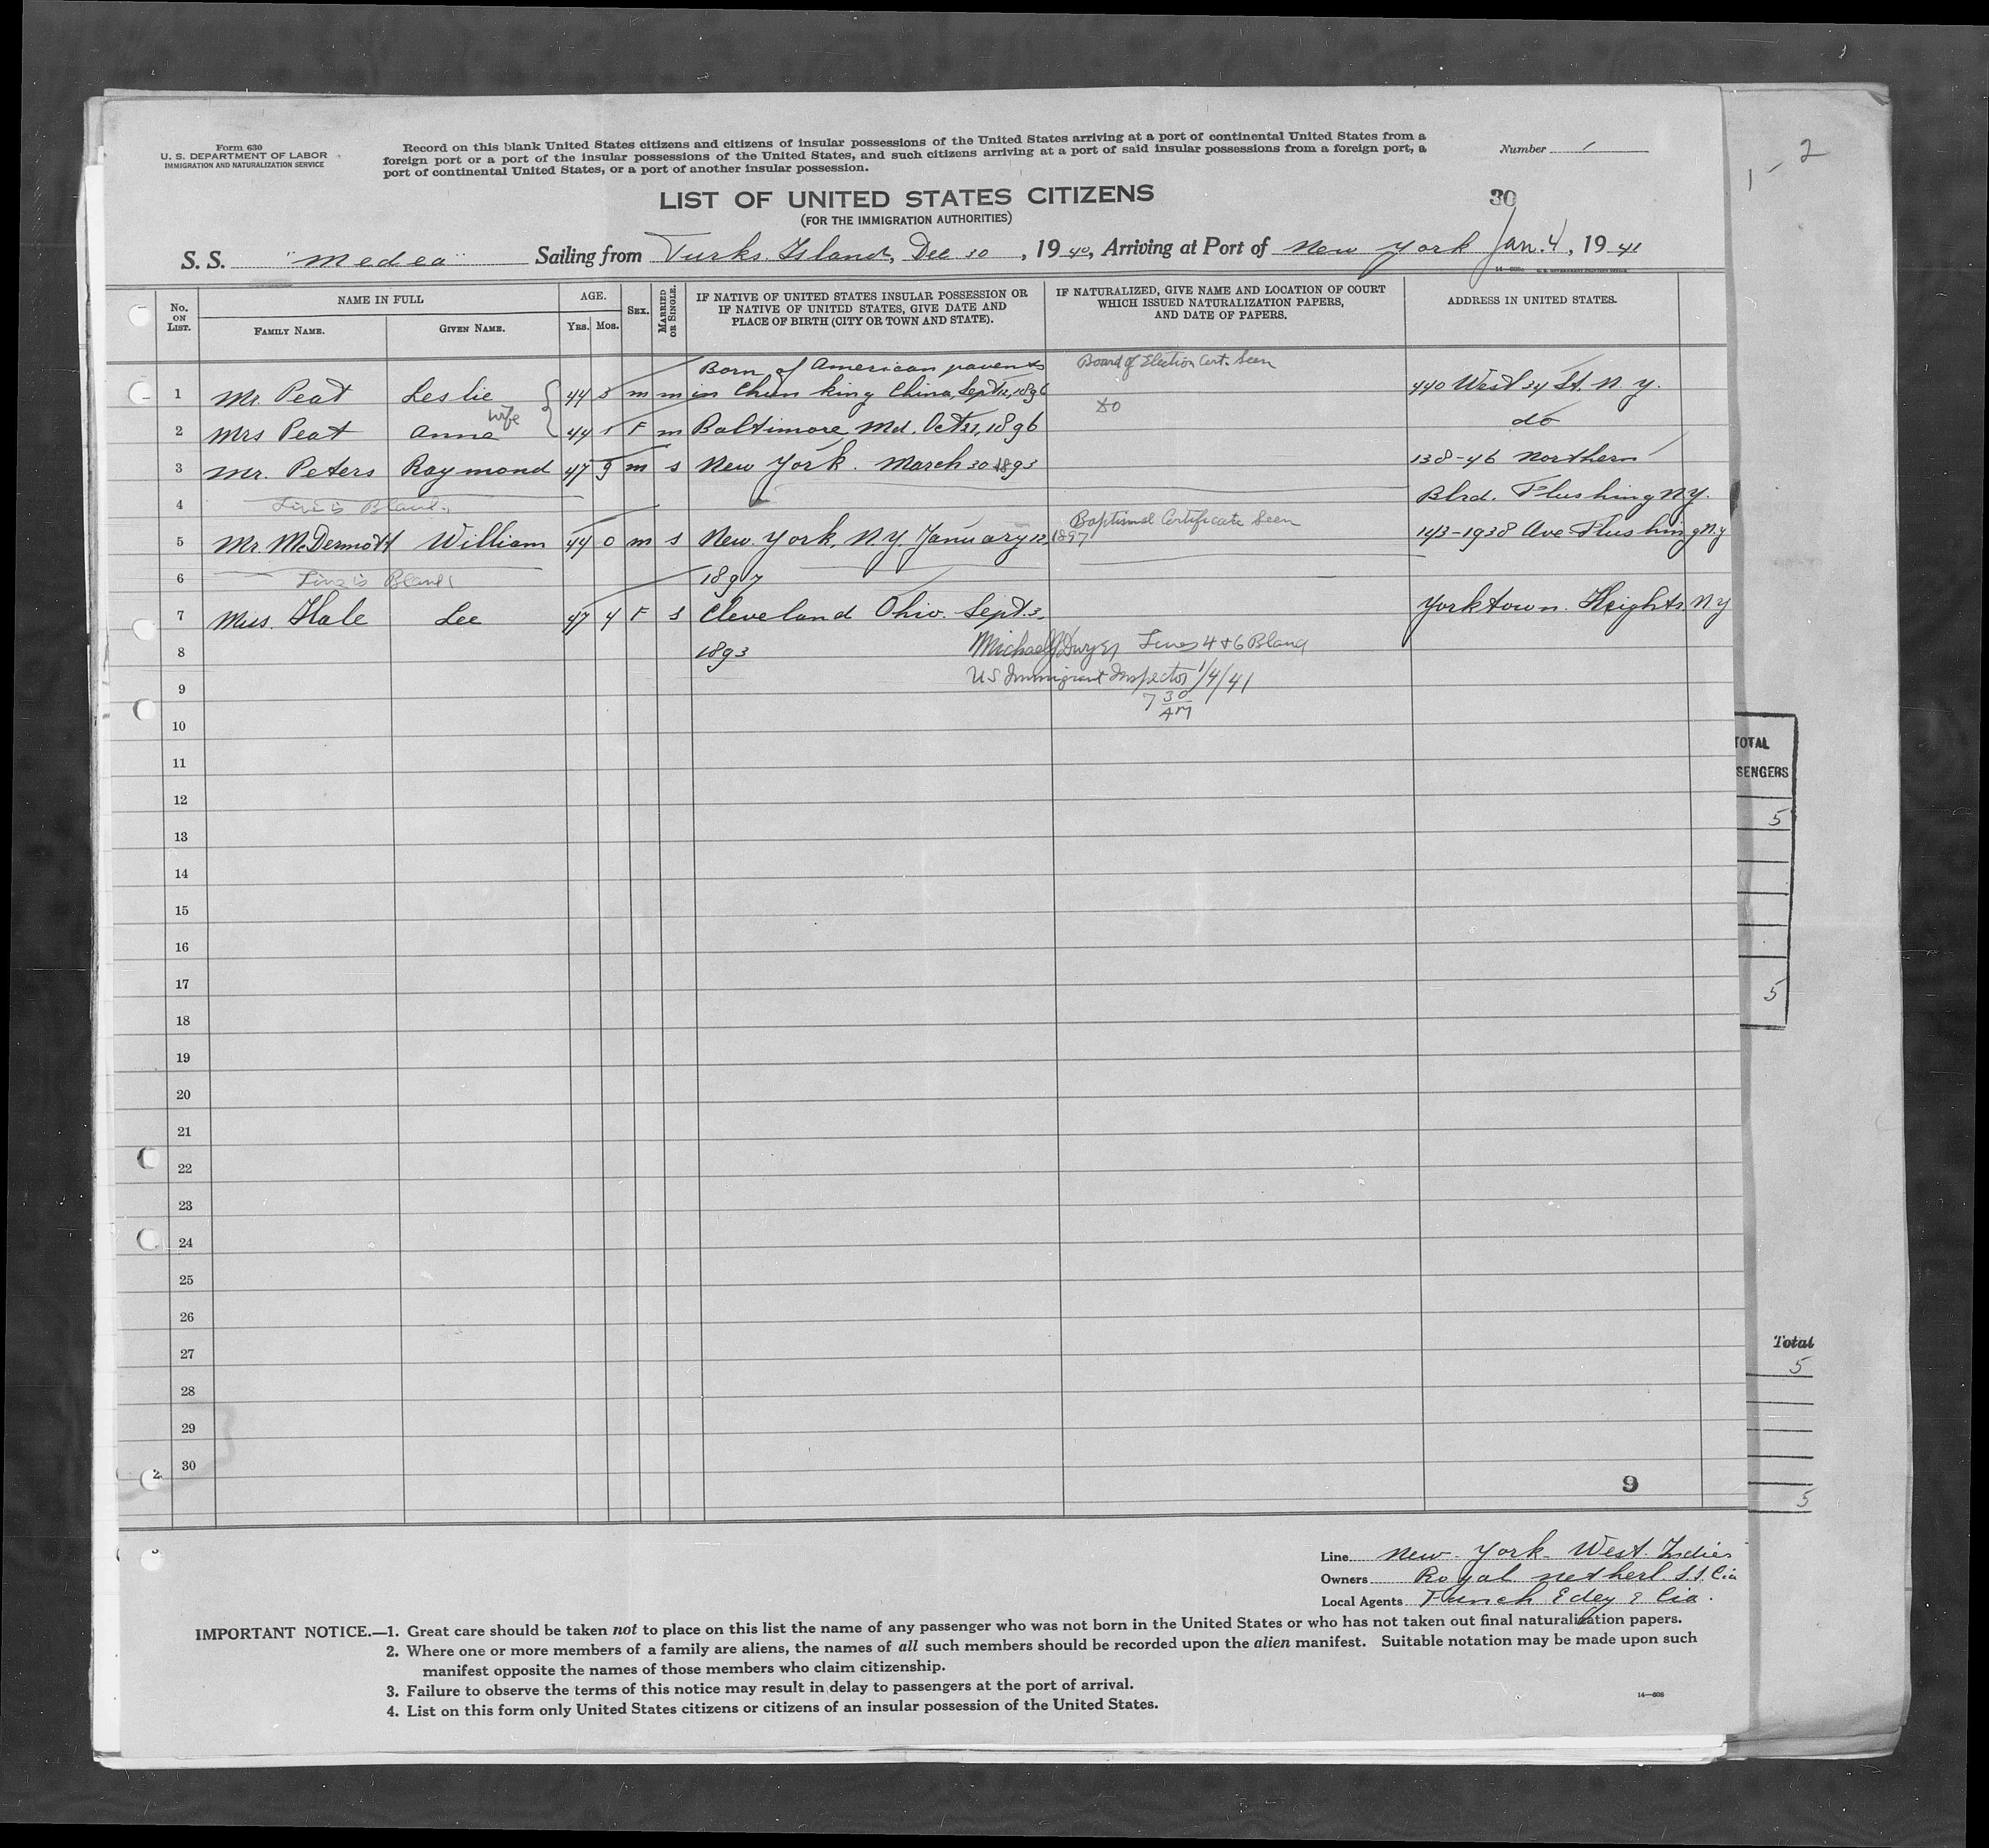 1 - 2
Form 630
U. S. DEPARTMENT OF LABOR
IMMIGRATION AND NATURALIZATION SERVICE
Record on this blank United States citizens and citizens of insular possessions of the United States arriving at a port of continental United States from a
foreign port or a port of the insular possessions of the United States, and such citizens arriving at a port of said insular possessions from a foreign port, a
port of continental United States, or a port of another insular possession.
Number
LIST OF UNITED STATES CITIZENS
(FOR THE IMMIGRATION AUTHORITIES)
30
S. S. "Medea" Sailing from Turks Island, Dec 30, 1940, Arriving at Port of New York Jan. 4, 1941
No. ON LIST. NAME IN FULL FAMILY NAME. GIVEN NAME. AGE. YRS. MOS. SEX. MARRIED OR SINGLE. IF NATIVE OF UNITED STATES INSULAR POSSESSION OR IF NATIVE OF UNITED STATES, GIVE DATE AND PLACE OF BIRTH (CITY OR TOWN AND STATE). IF NATURALIZED, GIVE NAME AND LOCATION OF COURT WHICH ISSUED NATURALIZATION PAPERS, AND DATE OF PAPERS. ADDRESS IN UNITED STATES.
Born of American parents Board of Election Cert. Seen
1 Mr. Peat Leslie 44 m m in Chun king China, Sept 1896 440 West 34 St. N.Y.
2 Mrs Peat Anna wife 44 F m Baltimore Md. Oct 1896 do do
3 Mr. Peters Raymond 47 9 m s New York. March 30 1893 138-46 Northern
4 Line is Blank. Blrd. Flushing N.Y.
Baptismal Certificate Seen
5 Mr. McDermott William 44 0 m s New York, N.Y. January 12, 1897 143-1938 Ave Flushing N.y
6 Line is Blank 1897
7 Miss. Hale Lee 47 4 F s Cleveland Ohio. Sept. 3. Yorktown. Heights N.y
8 1893 Michael J Dwyer Lines 4 & 6 Blank
9 US Immigrant Inspector 1/4/41
7 30 AM
10
11
12
13
14
15
16
17
18
19
20
21
22
23
24
25
26
27
28
29
30
9
TOTAL
SENGERS
5
5
Total
5
5
Line New York West Indies
Owners Royal Netherl. S.S. Cia
Local Agents Funch Edey & Cia.
IMPORTANT NOTICE.—1. Great care should be taken not to place on this list the name of any passenger who was not born in the United States or who has not taken out final naturalization papers.
2. Where one or more members of a family are aliens, the names of all such members should be recorded upon the alien manifest. Suitable notation may be made upon such
manifest opposite the names of those members who claim citizenship.
3. Failure to observe the terms of this notice may result in delay to passengers at the port of arrival.
4. List on this form only United States citizens or citizens of an insular possession of the United States.
14—608